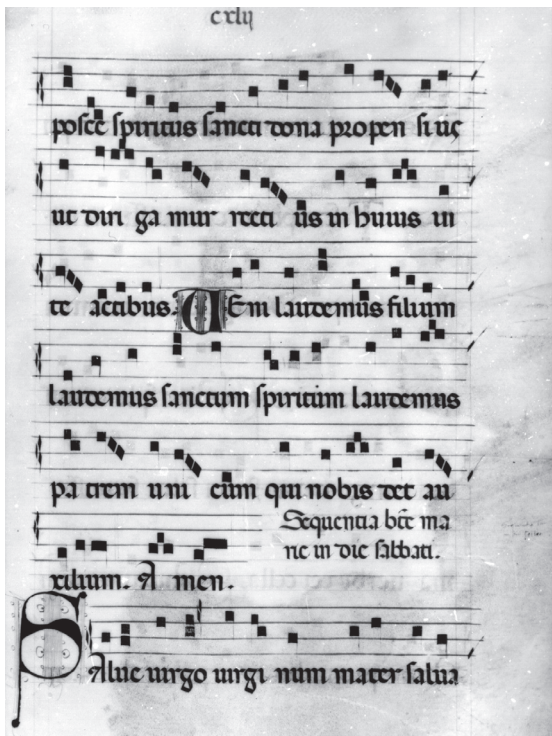 cxlij
posce spiritus sancti dona propen si us
ut diri ga mur recti us in huius ui
te actibus. laudemus filium
laudemus sanctum spiritum laudemus
pa trem uni cum qui nobis det au
Sequentia bte ma
rie in die sabbati.
xilium. A men.
SAlue uirgo uirgi num mater salua